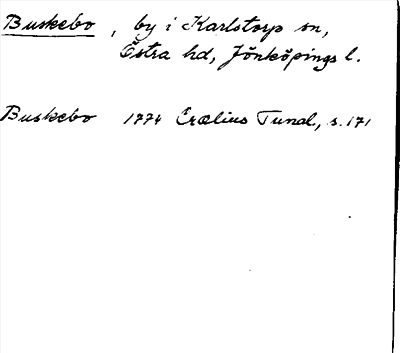 Buskebo, by i Karlstorp sn,
Östra hd, Jönköpings l.
Buskebo 1774 Crælius Tunal, s. 171